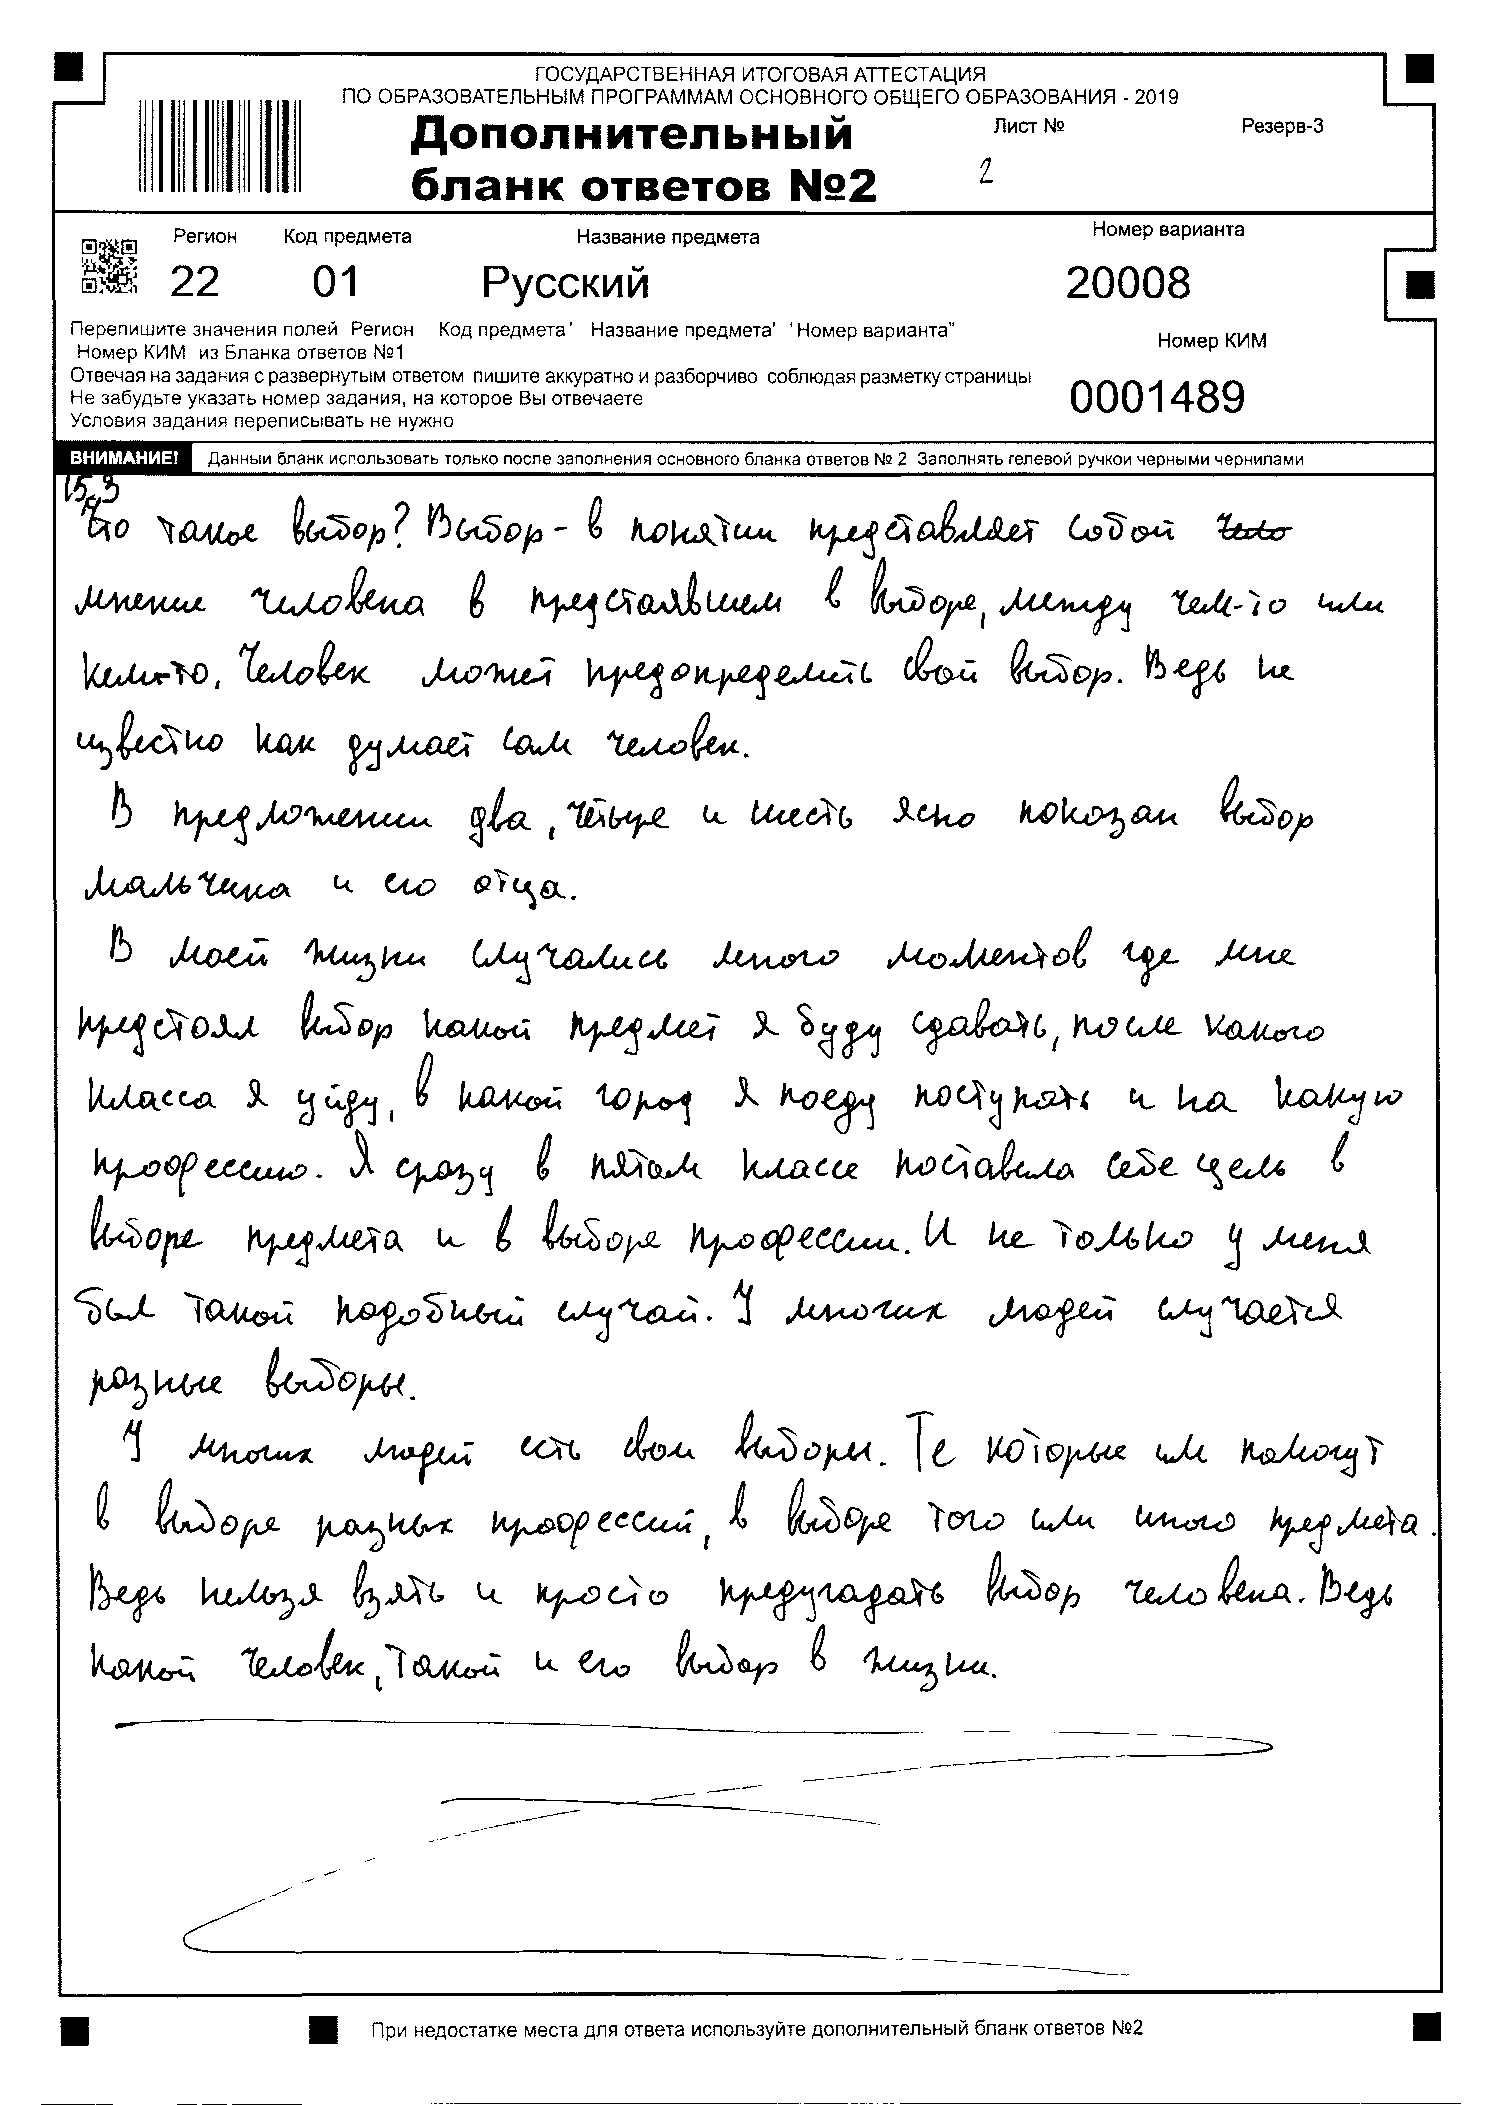 ГОСУДАРСТВЕННАЯ ИТОГОВАЯ АТТЕСТАЦИЯ
ПО ОБРАЗОВАТЕЛЬНЫМ ПРОГРАММАМ ОСНОВНОГО ОБЩЕГО ОБРАЗОВАНИЯ - 2019
Дополнительный
бланк ответов №2
Лист №
Резерв-3
2
Регион
Код предмета
Название предмета
Номер варианта
22
01
Русский
20008
Перепишите значения полей Регион Код предмета' Название предмета' 'Номер варианта"
Номер КИМ из Бланка ответов №1
Отвечая на задания с развернутым ответом пишите аккуратно и разборчиво соблюдая разметку страницы
Не забудьте указать номер задания, на которое Вы отвечаете
Условия задания переписывать не нужно
Номер КИМ
0001489
ВНИМАНИЕ! Данныи бланк использовать только после заполнения основного бланка ответов № 2 Заполнять гелевой ручкои черными чернилами
15.3
Что такое выбор? Выбор - в понятии представляет собой
мнение человека в предстаявшем в выборе, между чем-то или
кем-то. Человек может предопределить свой выбор. Ведь не
известно как думает сам человек.
В предложении два, четыре и шесть ясно показан выбор
мальчика и его отца.
В моей жизни случались много моментов где мне
предстоял выбор какой предмет я буду сдавать, после какого
класса я уйду, в какой город я поеду поступать и на какую
профессию. Я сразу в пятом классе поставила себе цель в
выборе предмета и в выборе профессии. И не только у меня
был такой подобный случай. У многих людей случается
разные выборы.
У многих людей есть свои выборы. Те которые им помогут
в выборе разных профессий, в выборе того или иного предмета.
Ведь нельзя взять и просто предугадать выбор человека. Ведь
какой человек, такой и его выбор в жизни.
При недостатке места для ответа используйте дополнительный бланк ответов №2